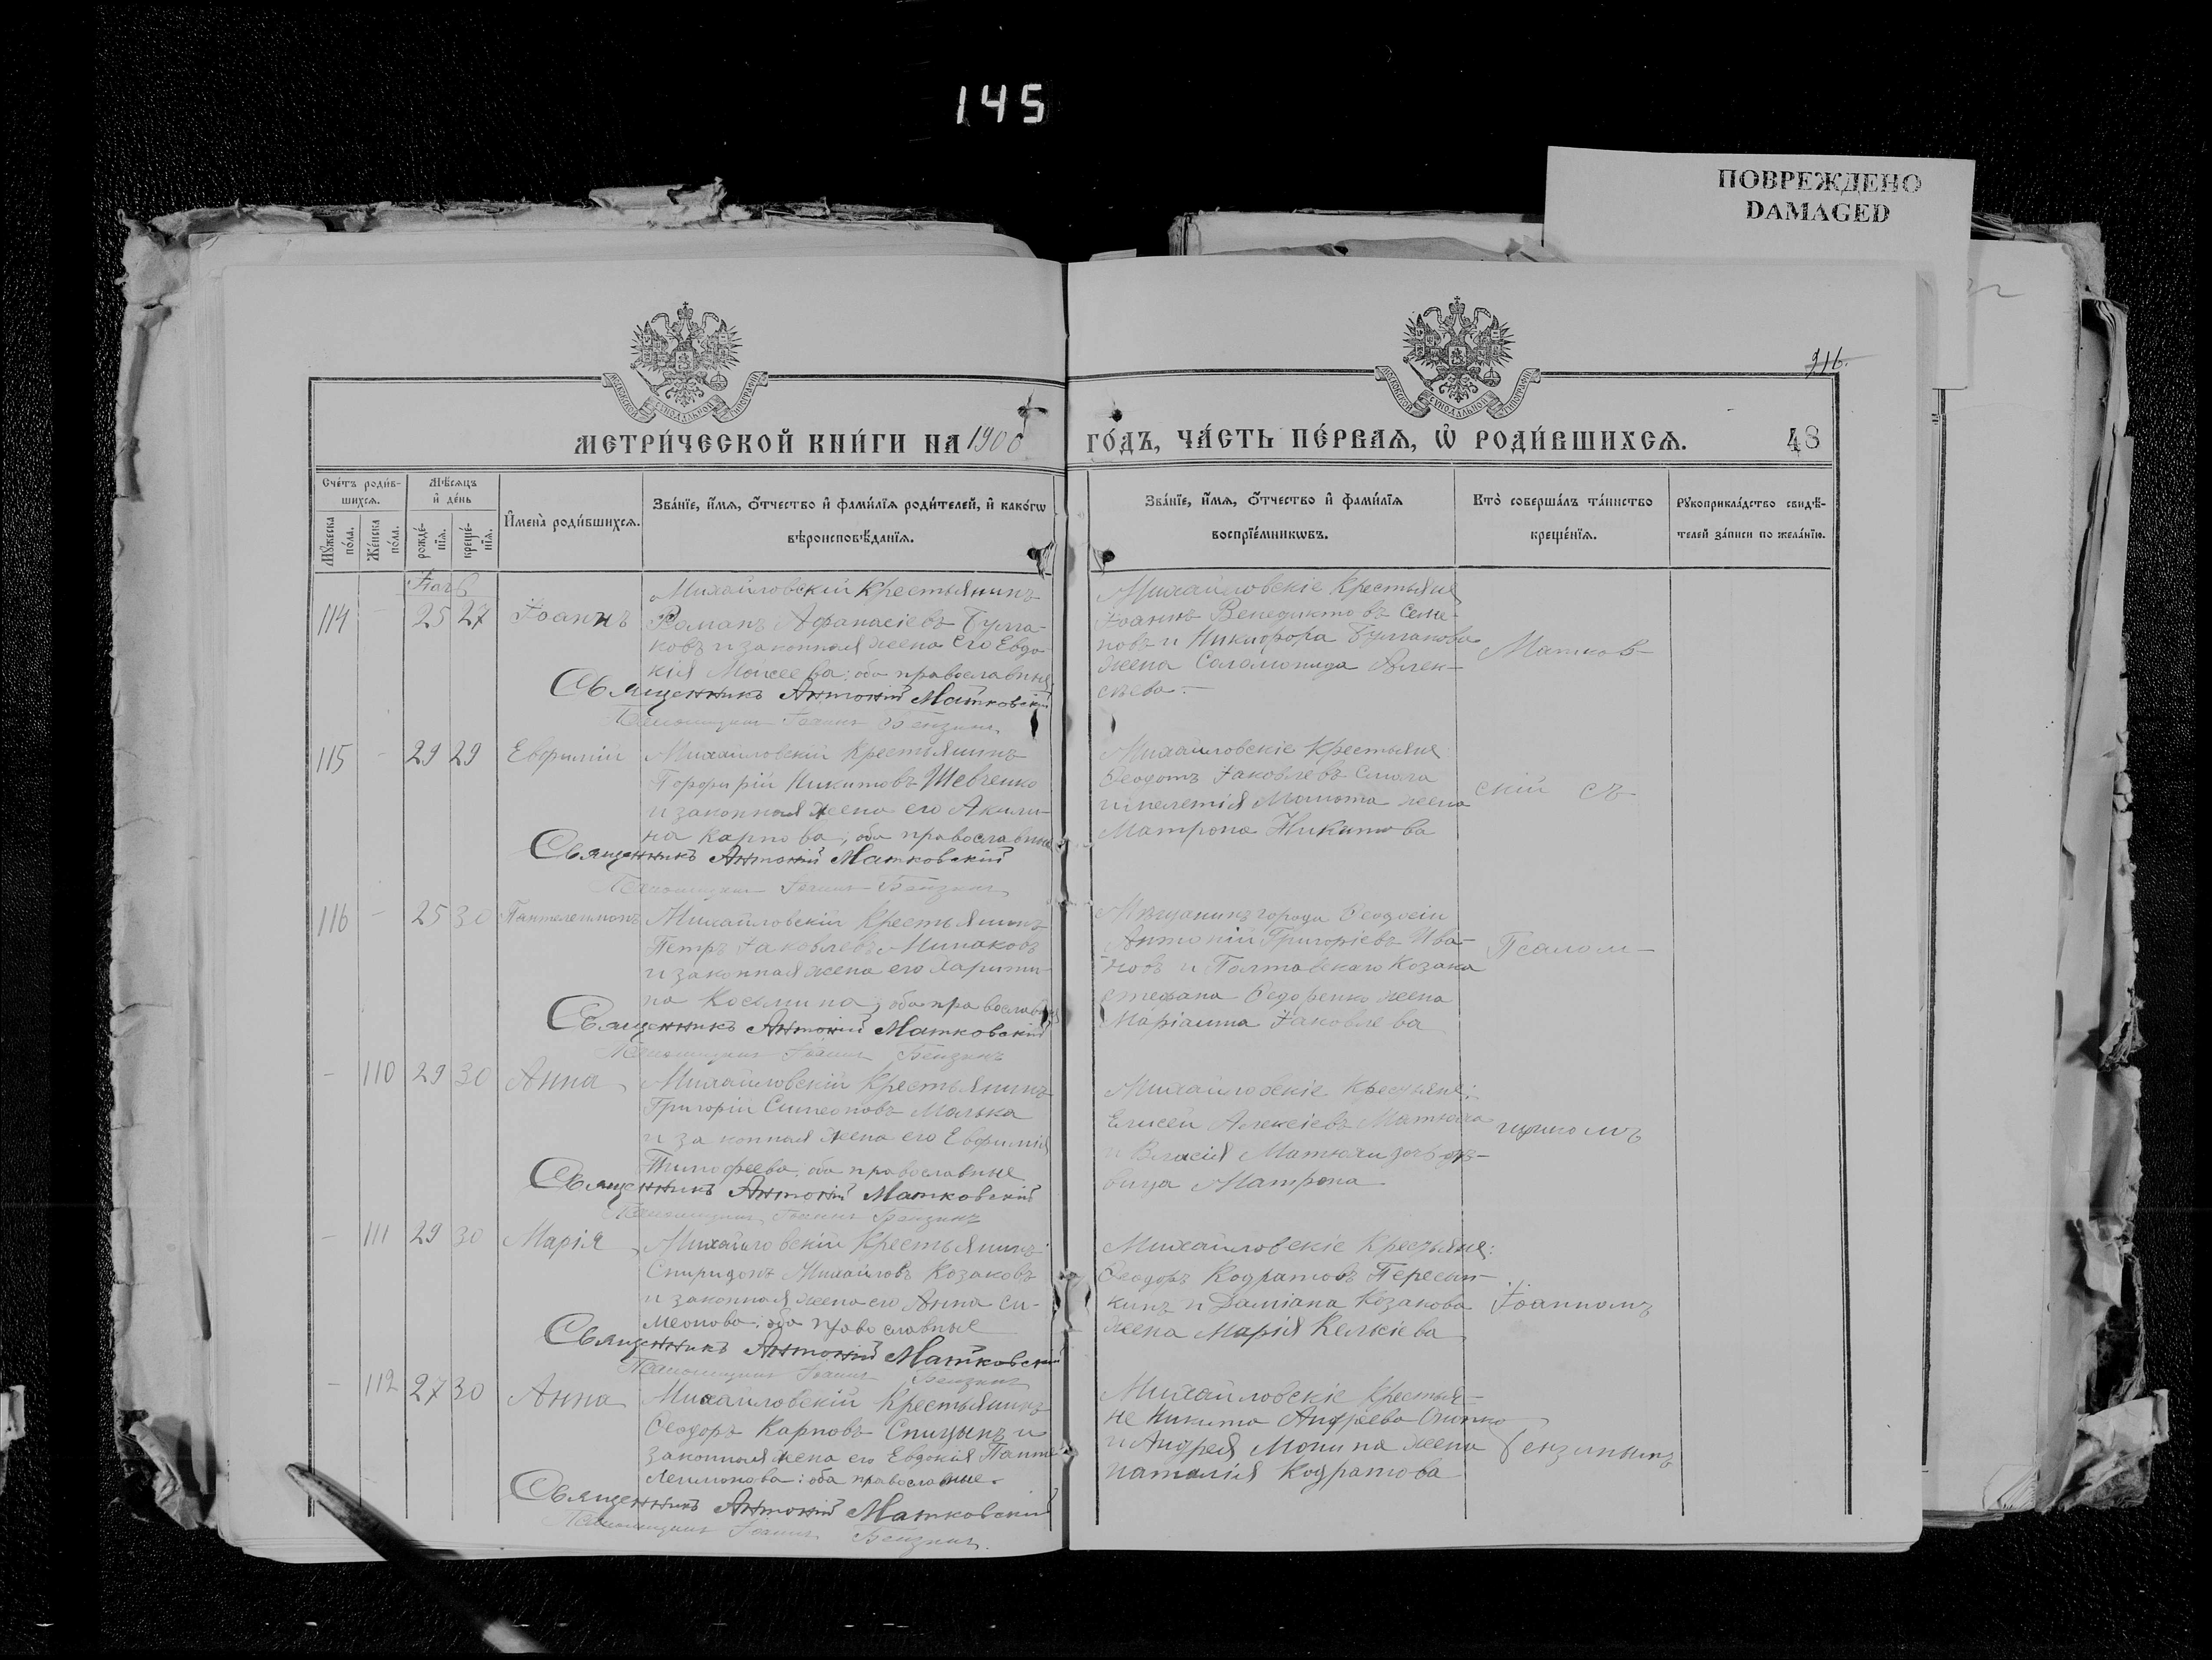 145
ПОВРЕЖДЕНО
DAMAGED
916.
МЕТРИ́ЧЕСКОЙ КНИ́ГИ НА 1900
ГО́ДЪ, ЧА́СТЬ ПЕ́РВАЯ, Ѡ҆ РОДИ́ВШИХСѦ.
48
Сче́тъ роди́в-
шихсѧ.
Мѣ́сѧцъ
и҆ де́нь
Мꙋ́жеска
по́ла.
Же́нска
по́ла.
рожде́-
нїѧ.
креще́-
нїѧ.
И҆мена̀ роди́вшихсѧ.
Зва́нїе, и҆́мѧ, ѻ҆́тчество и҆ фами́лїѧ роди́телей, и҆ како́гѡ
вѣроисповѣ́данїѧ.
Зва́нїе, и҆́мѧ, ѻ҆́тчество и҆ фами́лїѧ
воспрїе́мникѡвъ.
Кто̀ соверша́лъ та́инство
креще́нїѧ.
Рꙋкоприкла́дство свидѣ́-
телей за́писи по жела́нїю.
114 - 25 27 Іоаннъ
Михайловскій крестьянинъ
Романъ Афанасіевъ Булга-
ковъ и законная жена его Евдо-
кія Моисеева; оба православные
Священникъ Антоній Матковскій
Псаломщикъ Іоаннъ Бензинъ
Михайловскіе крестьяне
Іоаннъ Венедиктовъ Семе-
новъ и Никифора Булгакова
жена Соломонида Алек-
сѣева.-
Матков-
115 - 29 29 Евфимій
Михайловскій крестьянинъ
Порфирій Никитовъ Шевченко
и законная жена его Акили-
на Карпова; оба православные
Священникъ Антоній Матковскій
Псаломщикъ Іоаннъ Бензинъ
Михайловскіе крестьяне
Ѳеодотъ Іаковлевъ
жена
Матрона Никитова
скій съ
116 - 25 30 Пантелеимонъ
Михайловскій крестьянинъ
Петръ Іаковлевъ Минаковъ
и законная жена его Харити-
на Косьмина; оба православные
Священникъ Антоній Матковскій
Псаломщикъ Іоаннъ Бензинъ
Мѣщанинъ города Ѳеодосіи
Антоній Григоріевъ Ива-
новъ и Полтавскаго козака
Стефана Ѳедоренко жена
Маріанна Іаковлева
Псалом-
- 110 29 30 Анна
Михайловскій крестьянинъ
Григорій Симеоновъ Малька
и законная жена его Евфимія
Тимофеева; оба православные
Священникъ Антоній Матковскій
Псаломщикъ Іоаннъ Бензинъ
Михайловскіе крестьяне:
Елисей Алексіевъ Матюха
и Власія Матюхи дочь дѣ-
вица Матрона
щикомъ
- 111 29 30 Марія
Михайловскій крестьянинъ
Спиридонъ Михайловъ Козаковъ
и законная жена его Анна Си-
меонова; оба православные
Священникъ Антоній Матковскій
Псаломщикъ Іоаннъ Бензинъ
Михайловскіе крестьяне:
Ѳеодоръ Кодратовъ Пересып-
кинъ и Даміана Козакова
жена Марія Келсіева
Іоанномъ
- 112 27 30 Анна
Михайловскій крестьянинъ
Ѳеодоръ Карповъ Спицынъ и
законная жена его Евдокія Панте-
леимонова: оба православные.
Священникъ Антоній Матковскій
Псаломщикъ Іоаннъ Бензинъ.
Михайловскіе крестья-
не Никита Андреевъ
и Андрея жена
Наталія Кодратова
Бензинымъ